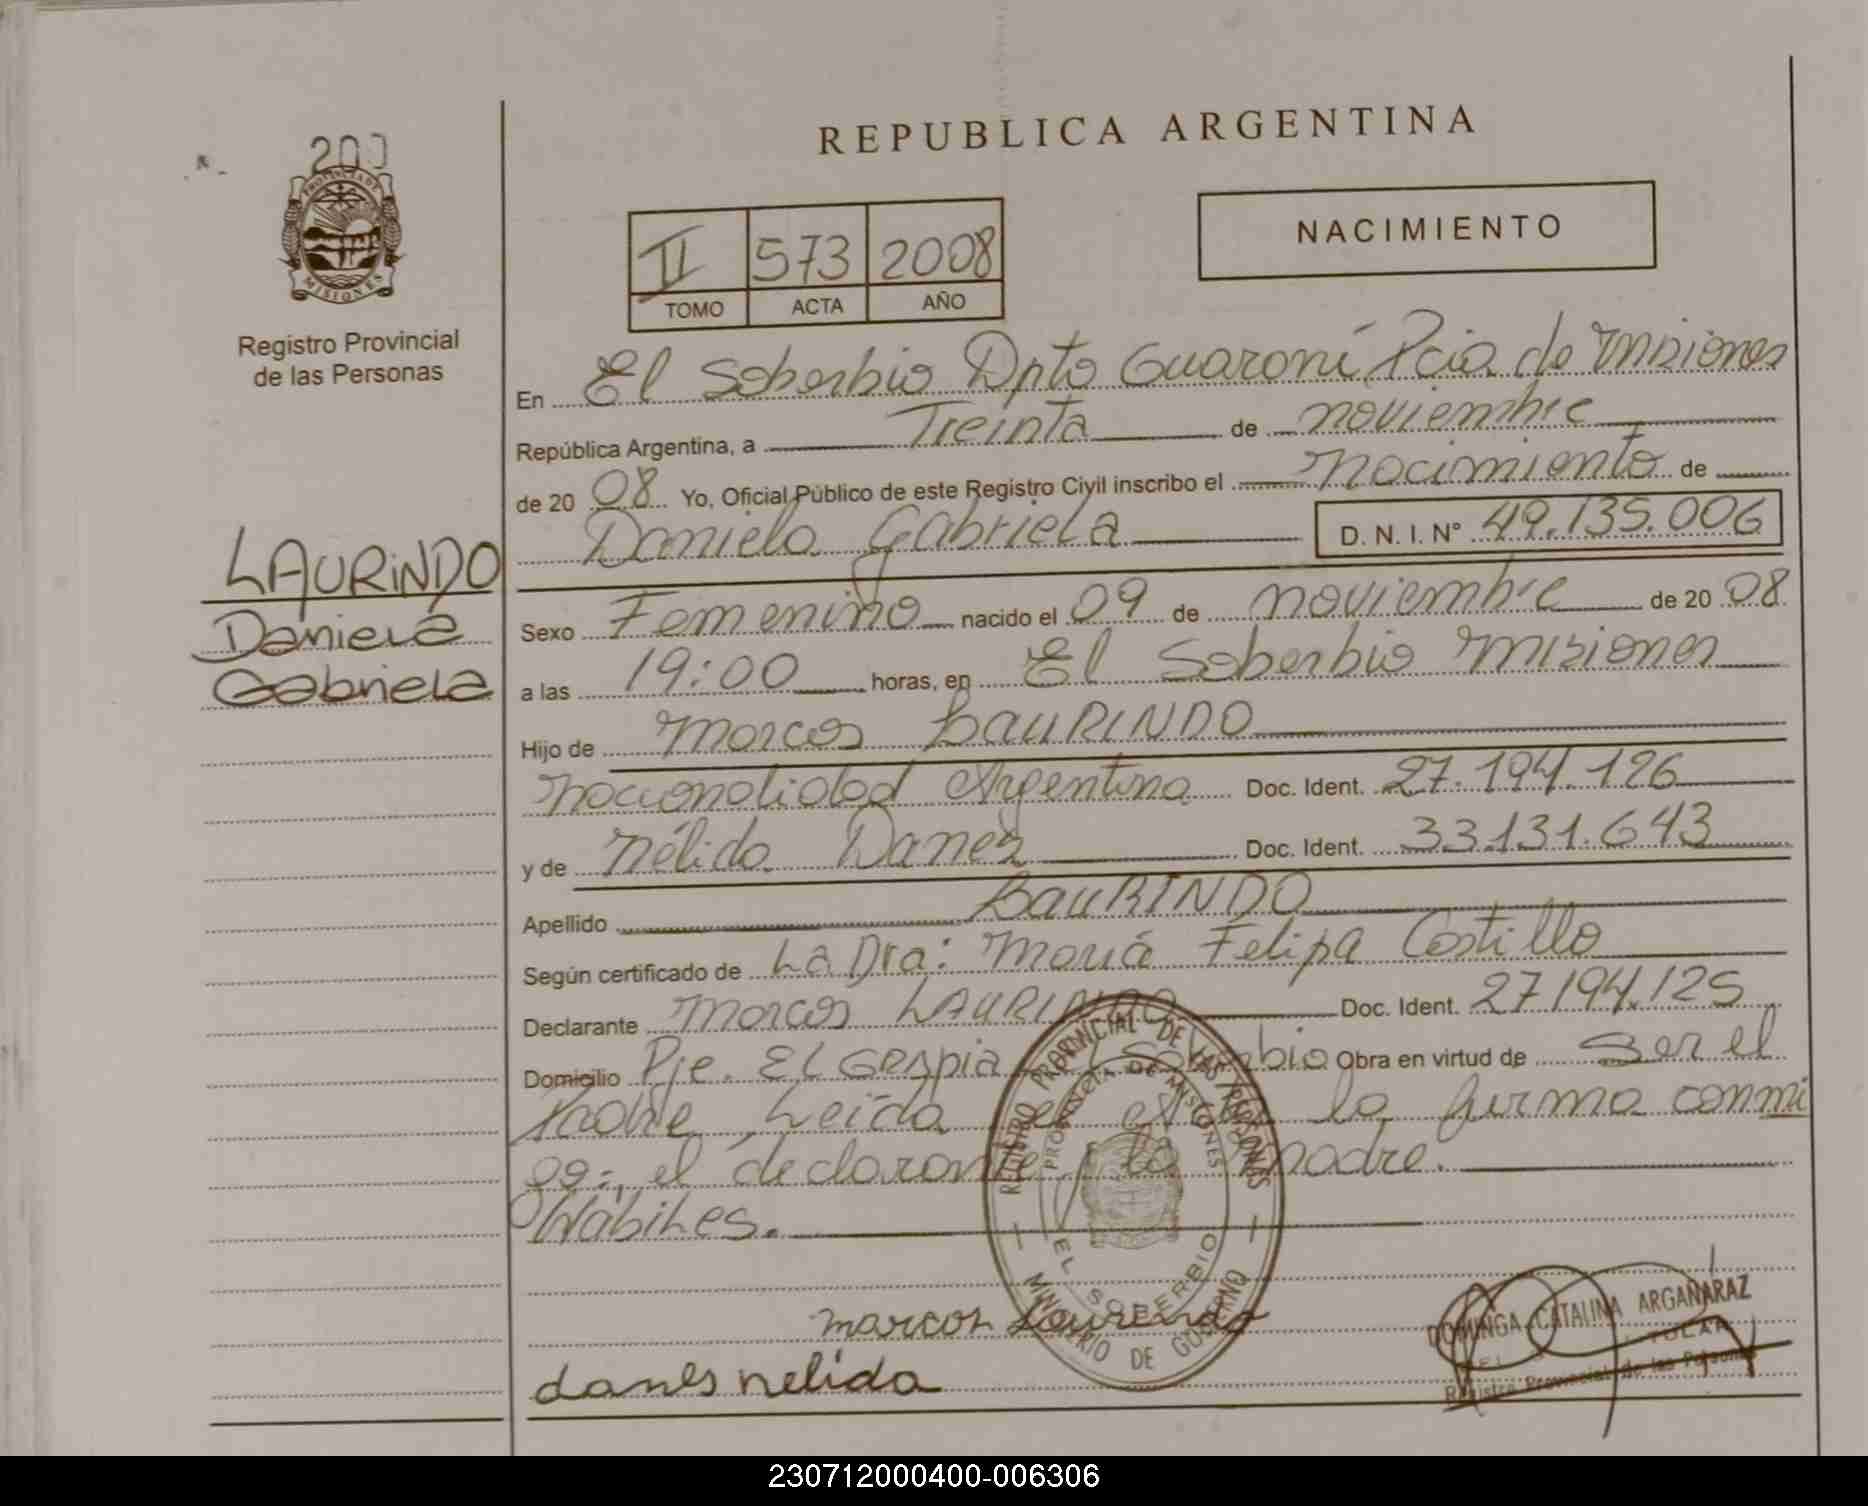 REPUBLICA ARGENTINA
PROVINCIA DE
MISIONES
Registro Provincial
de las Personas
II 573 2008
TOMO ACTA AÑO
NACIMIENTO
En El Soberbio Dpto Guaraní Pcia de Misiones
República Argentina, a Treinta de noviembre
de 20 08 Yo, Oficial Público de este Registro Civil inscribo el Nacimiento de
Daniela Gabriela D. N. I. N° 49.135.006
LAURINDO
Daniela
Gabriela
Sexo Femenino nacido el 09 de noviembre de 20 08
a las 19:00 horas, en El Soberbio Misiones
Hijo de Marcos LauRINDO
Nacionalidad Argentina Doc. Ident. 27.194.126
y de Nélida Danes Doc. Ident. 33.131.643
Apellido LauRINDO
Según certificado de La Dra: María Felipa Castillo
Declarante Marcos LAURINDO Doc. Ident. 27194.125
Domicilio Pje. EL Soberbio Obra en virtud de Ser el
Padre Leída el la firma conmi
go: el declarante y la madre.
Wábiles.
REGISTRO PROVINCIAL DE LAS PERSONAS
PROVINCIA DE MISIONES
EL SOBERBIO
MINISTERIO DE GOBIERNO
marcos Laurindo
danes nelida
DOMINGA CATALINA ARGAÑARAZ
Registro Provincial de las Personas
230712000400-006306